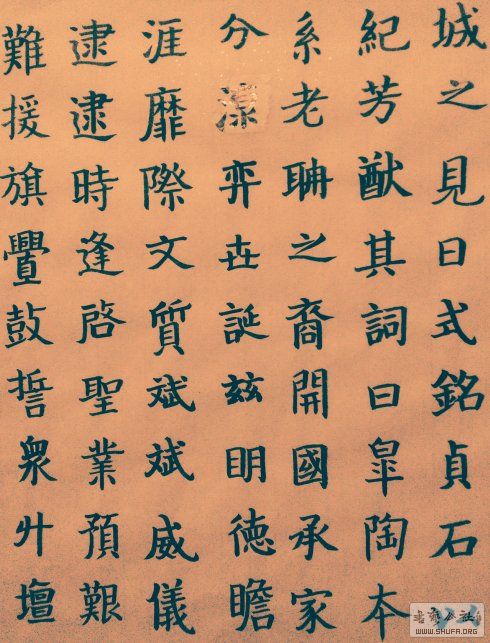 城之見日式銘貞石
紀芳猷其詞曰皐陶本
系老聃之裔開國承家
分弈世誕兹明德瞻
涯靡際文質斌斌威儀
逮逮時逢啓聖業預艱
難援旗釁鼓誓衆升壇
WWW.SHUFA.ORG